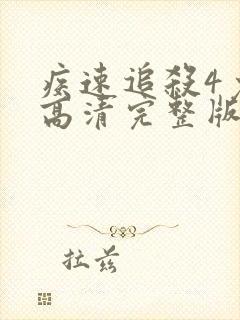 疾速追殺4
高清完整版
拉兹